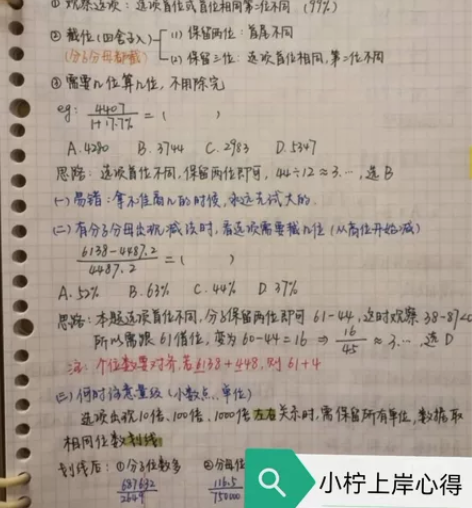 ① 观察选项：选项首位或首位相同第二位不同 (99%)
② 截位 (四舍五入) (1) 保留两位：首尾不同
(分子分母都截) (2) 保留三位：选项首位相同，第二位不同
③ 需要几位算几位，不用除完
eg: 4407/1+17.7% = ( )
A. 4290 B. 3744 C. 2983 D. 5347
思路：选项首位不同，保留两位即可，44÷12≈3…，选B
(一) 易错：拿不准商几的时候，永远先试大的.
(二) 有分子分母出现减法时，看选项需要截几位 (从高位开始减)
6138-4487.2/4487.2 = ( )
A. 52% B. 63% C. 44% D 37%
思路：本题选项首位不同，分子保留两位即可 61-44，这时观察 38-87<0
所以需跟61借位，变为 60-44=16 ⇒ 16/45 ≈ 3…，选D
注：个位数要对齐，若6138+448，则61+4
(三) 何时注意量级 (小数点，单位)
选项出现10倍、100倍、1000倍左右关系时，需保留所有单位，数据取
相同位数划线.
划线后：①分子位数多 ②分母位
687632/2649 116.5/750000
小柠上岸心得